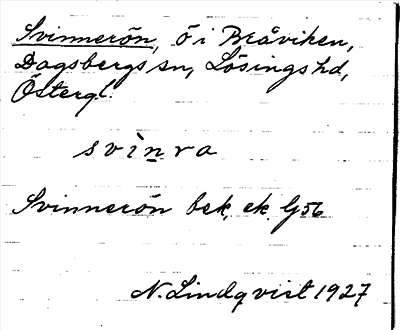 Svinnerön, ö i Bråviken,
Dagsbergs sn, Lösings hd,
Östergl.
svìnra
Svinnerön bek. ek. G56
N. Lindqvist 1927